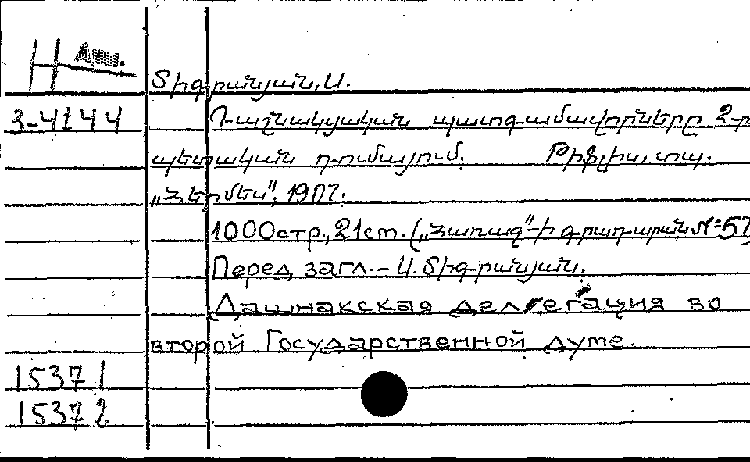 Н Арм.
Տիգրանյան, Ս.
3-4144 Դաշնակցական պատգամավորները 2-րդ
պետական դումայում. Թիֆլիս, տպ.
„Հերմես", 1907.
1000стр., 21см. („Հառաջ"-ի գրադարան №57
Перед загл. - Ս. Տիգրանյան.
Дашнакская делегация во
второй Государственной думе.
15371
15372